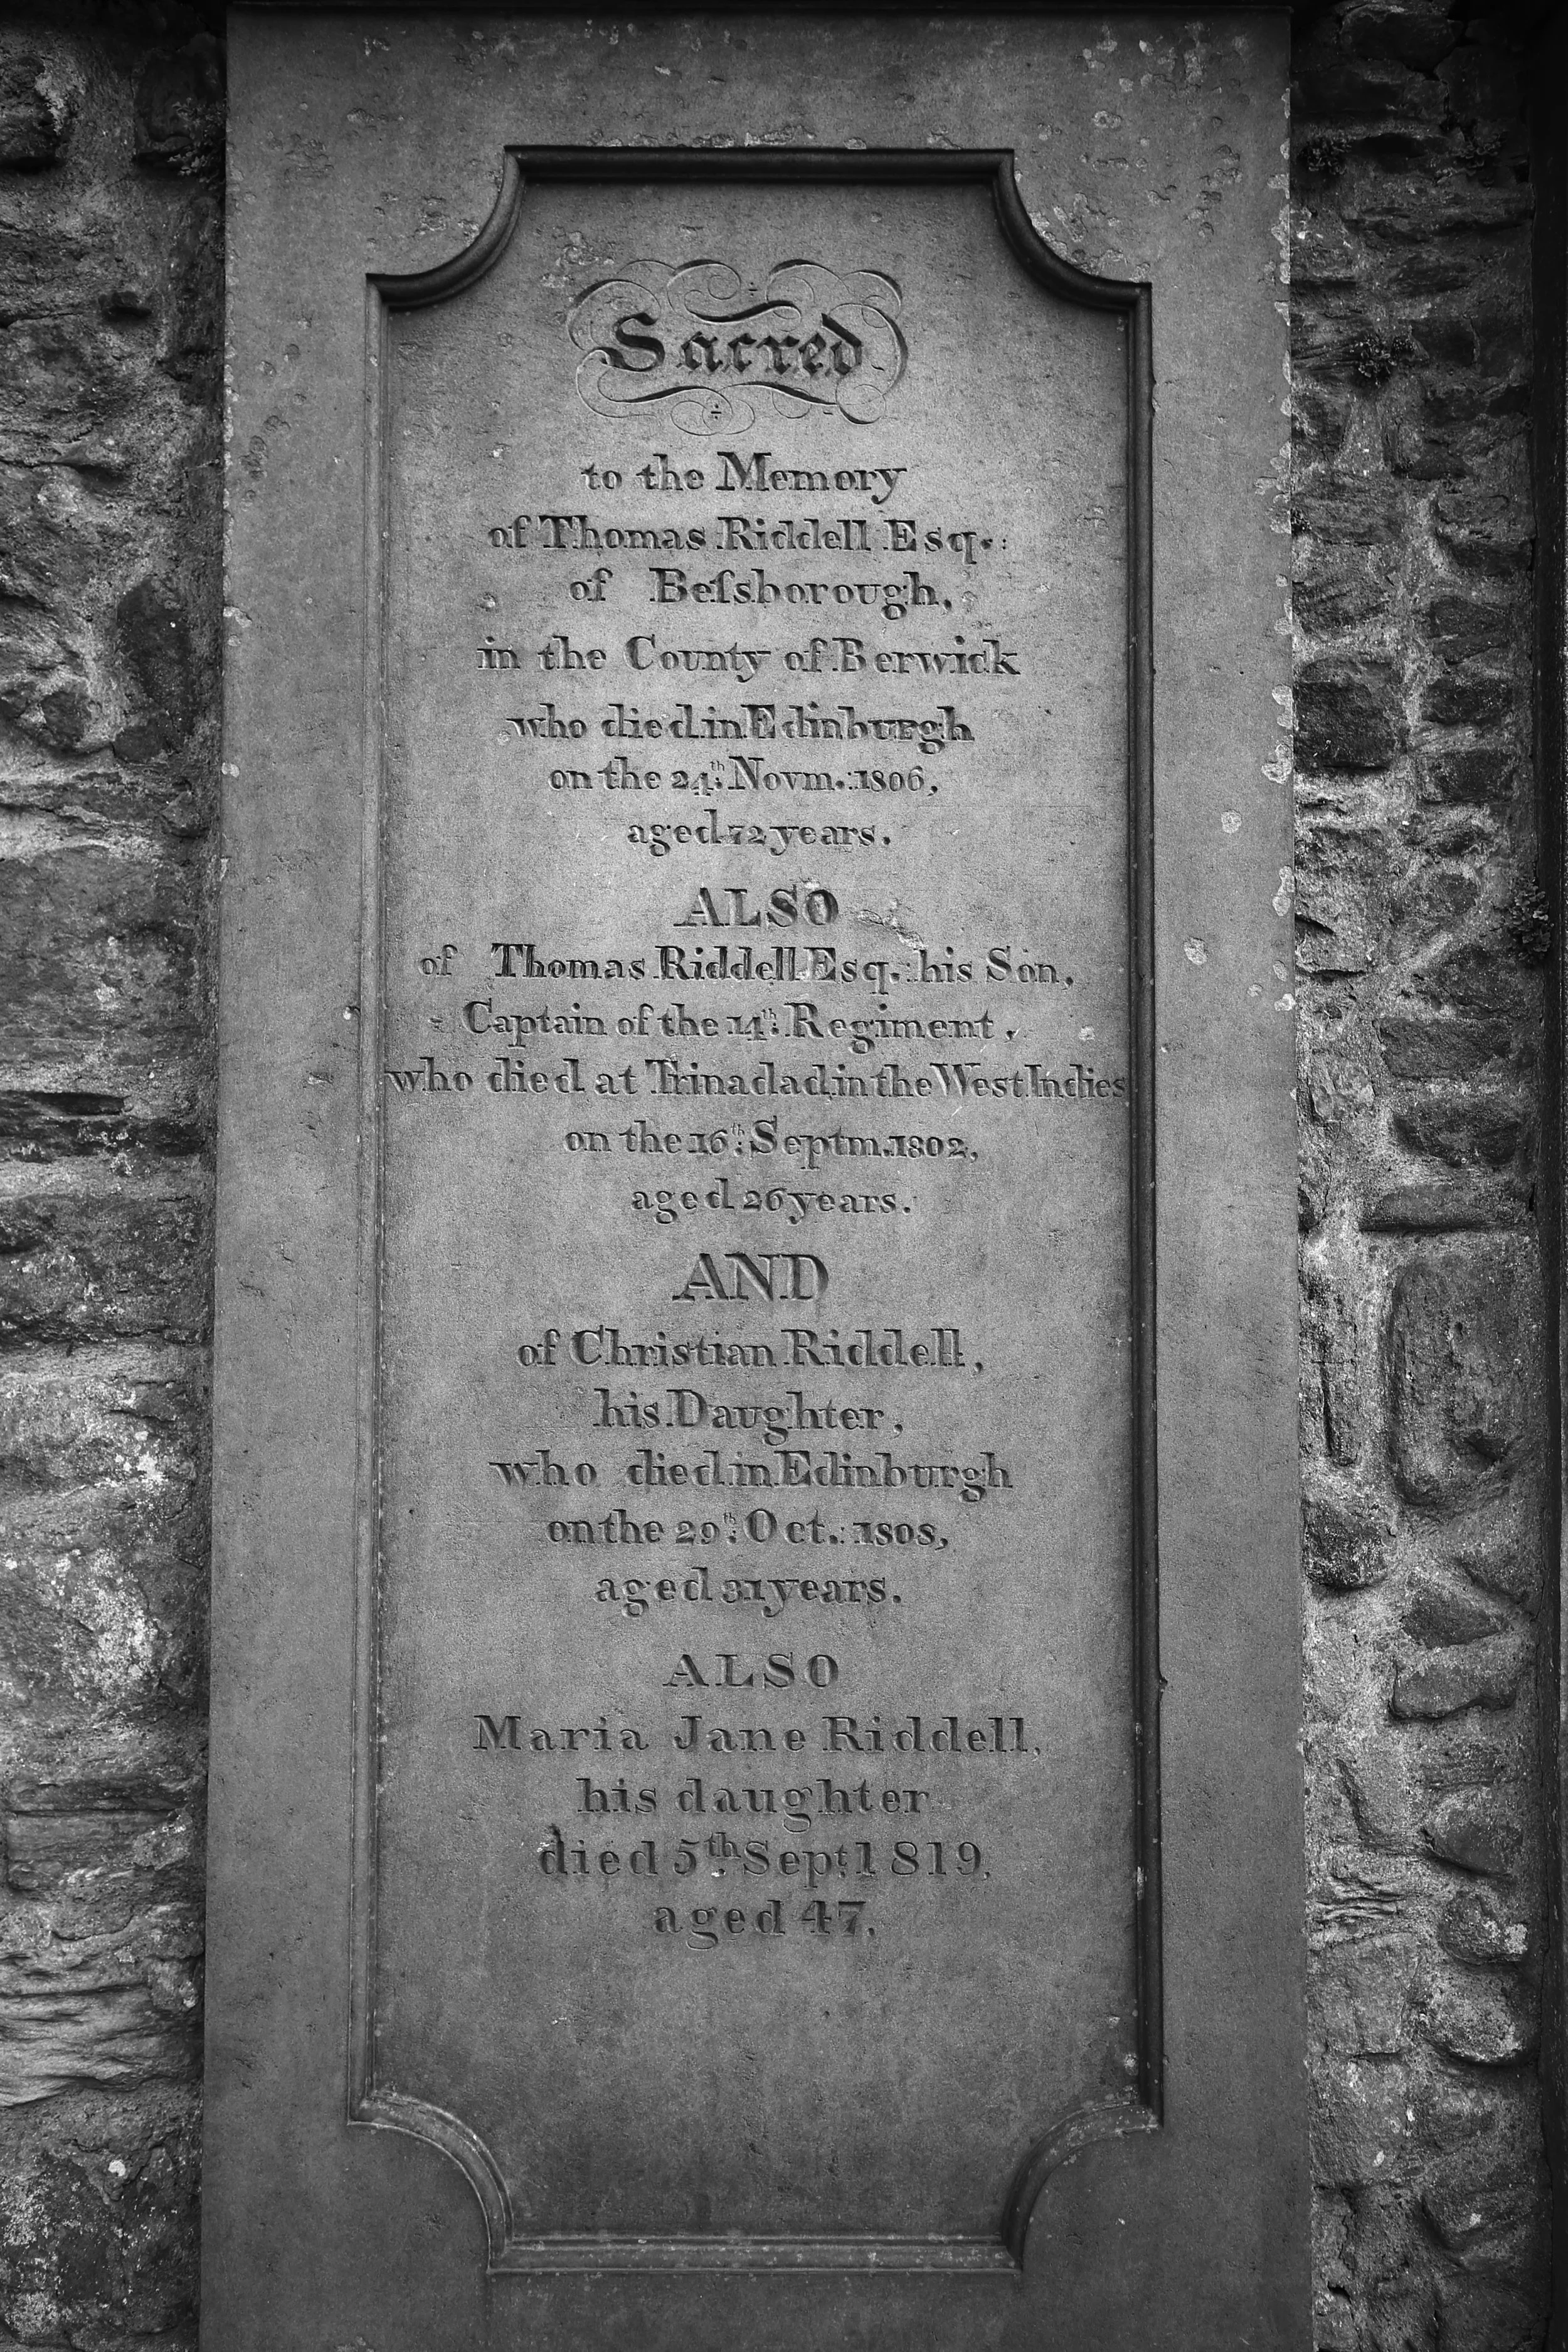 Sacred
to the Memory
of Thomas Riddell Esq.:
of Beſsborough,
in the County of Berwick
who died in Edinburgh
on the 24th. Novm.: 1806,
aged 72 years.
ALSO
of Thomas Riddell Esq.: his Son,
Captain of the 14th. Regiment,
who died at Trinadad in the West Indies
on the 16th. Septm. 1802,
aged 26 years.
AND
of Christian Riddell,
his Daughter,
who died in Edinburgh
on the 29th. Oct.: 1808,
aged 31 years.
ALSO
Maria Jane Riddell,
his daughter
died 5th Sept. 1819.
aged 47.